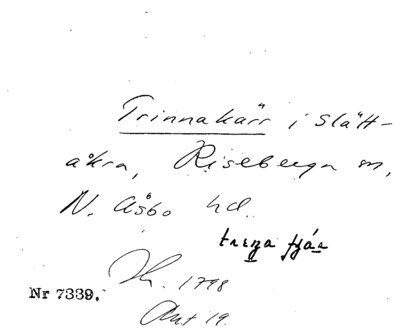 Trinnakärr i Slätt-
åkra, Riseberga sn,
N. Åsbo hd.
Nr 7339. 1798
Akt 19.